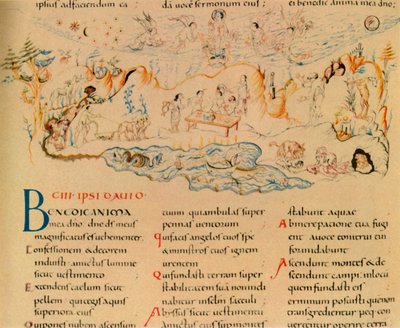 ipsius adfaciendum ea
da uoce sermonum eius;
ei benedic anima mea dno;
CIII · IPSI DAUID ·
BENEDIC ANIMA
mea dno dne ds meus
magnificatus es uehementer
Confessionem & decorem
induisti amictus lumine
sicut uestimento
Extendens caelum sicut
pellem qui tegis aquis
superiora eius
Qui ponet nubem ascensum
tuum qui ambulas super
pennas uentorum
Qui facis angelos tuos sps
& ministros tuos ignem
urentem
Qui fundasti terram super
stabilitatem sua non incli
nabitur in seclm saeculi
Abyssus sicut uestimentum
amictus eius super montes
stabunt aquae
Ab increpatione tua fugi
ent a uoce tonitrui tui
formidabunt
Ascendunt montes & de
scendunt campi in locu
quem fundasti eis
Terminum posuisti quem non
transgredientur neq con
uertentur operire terram